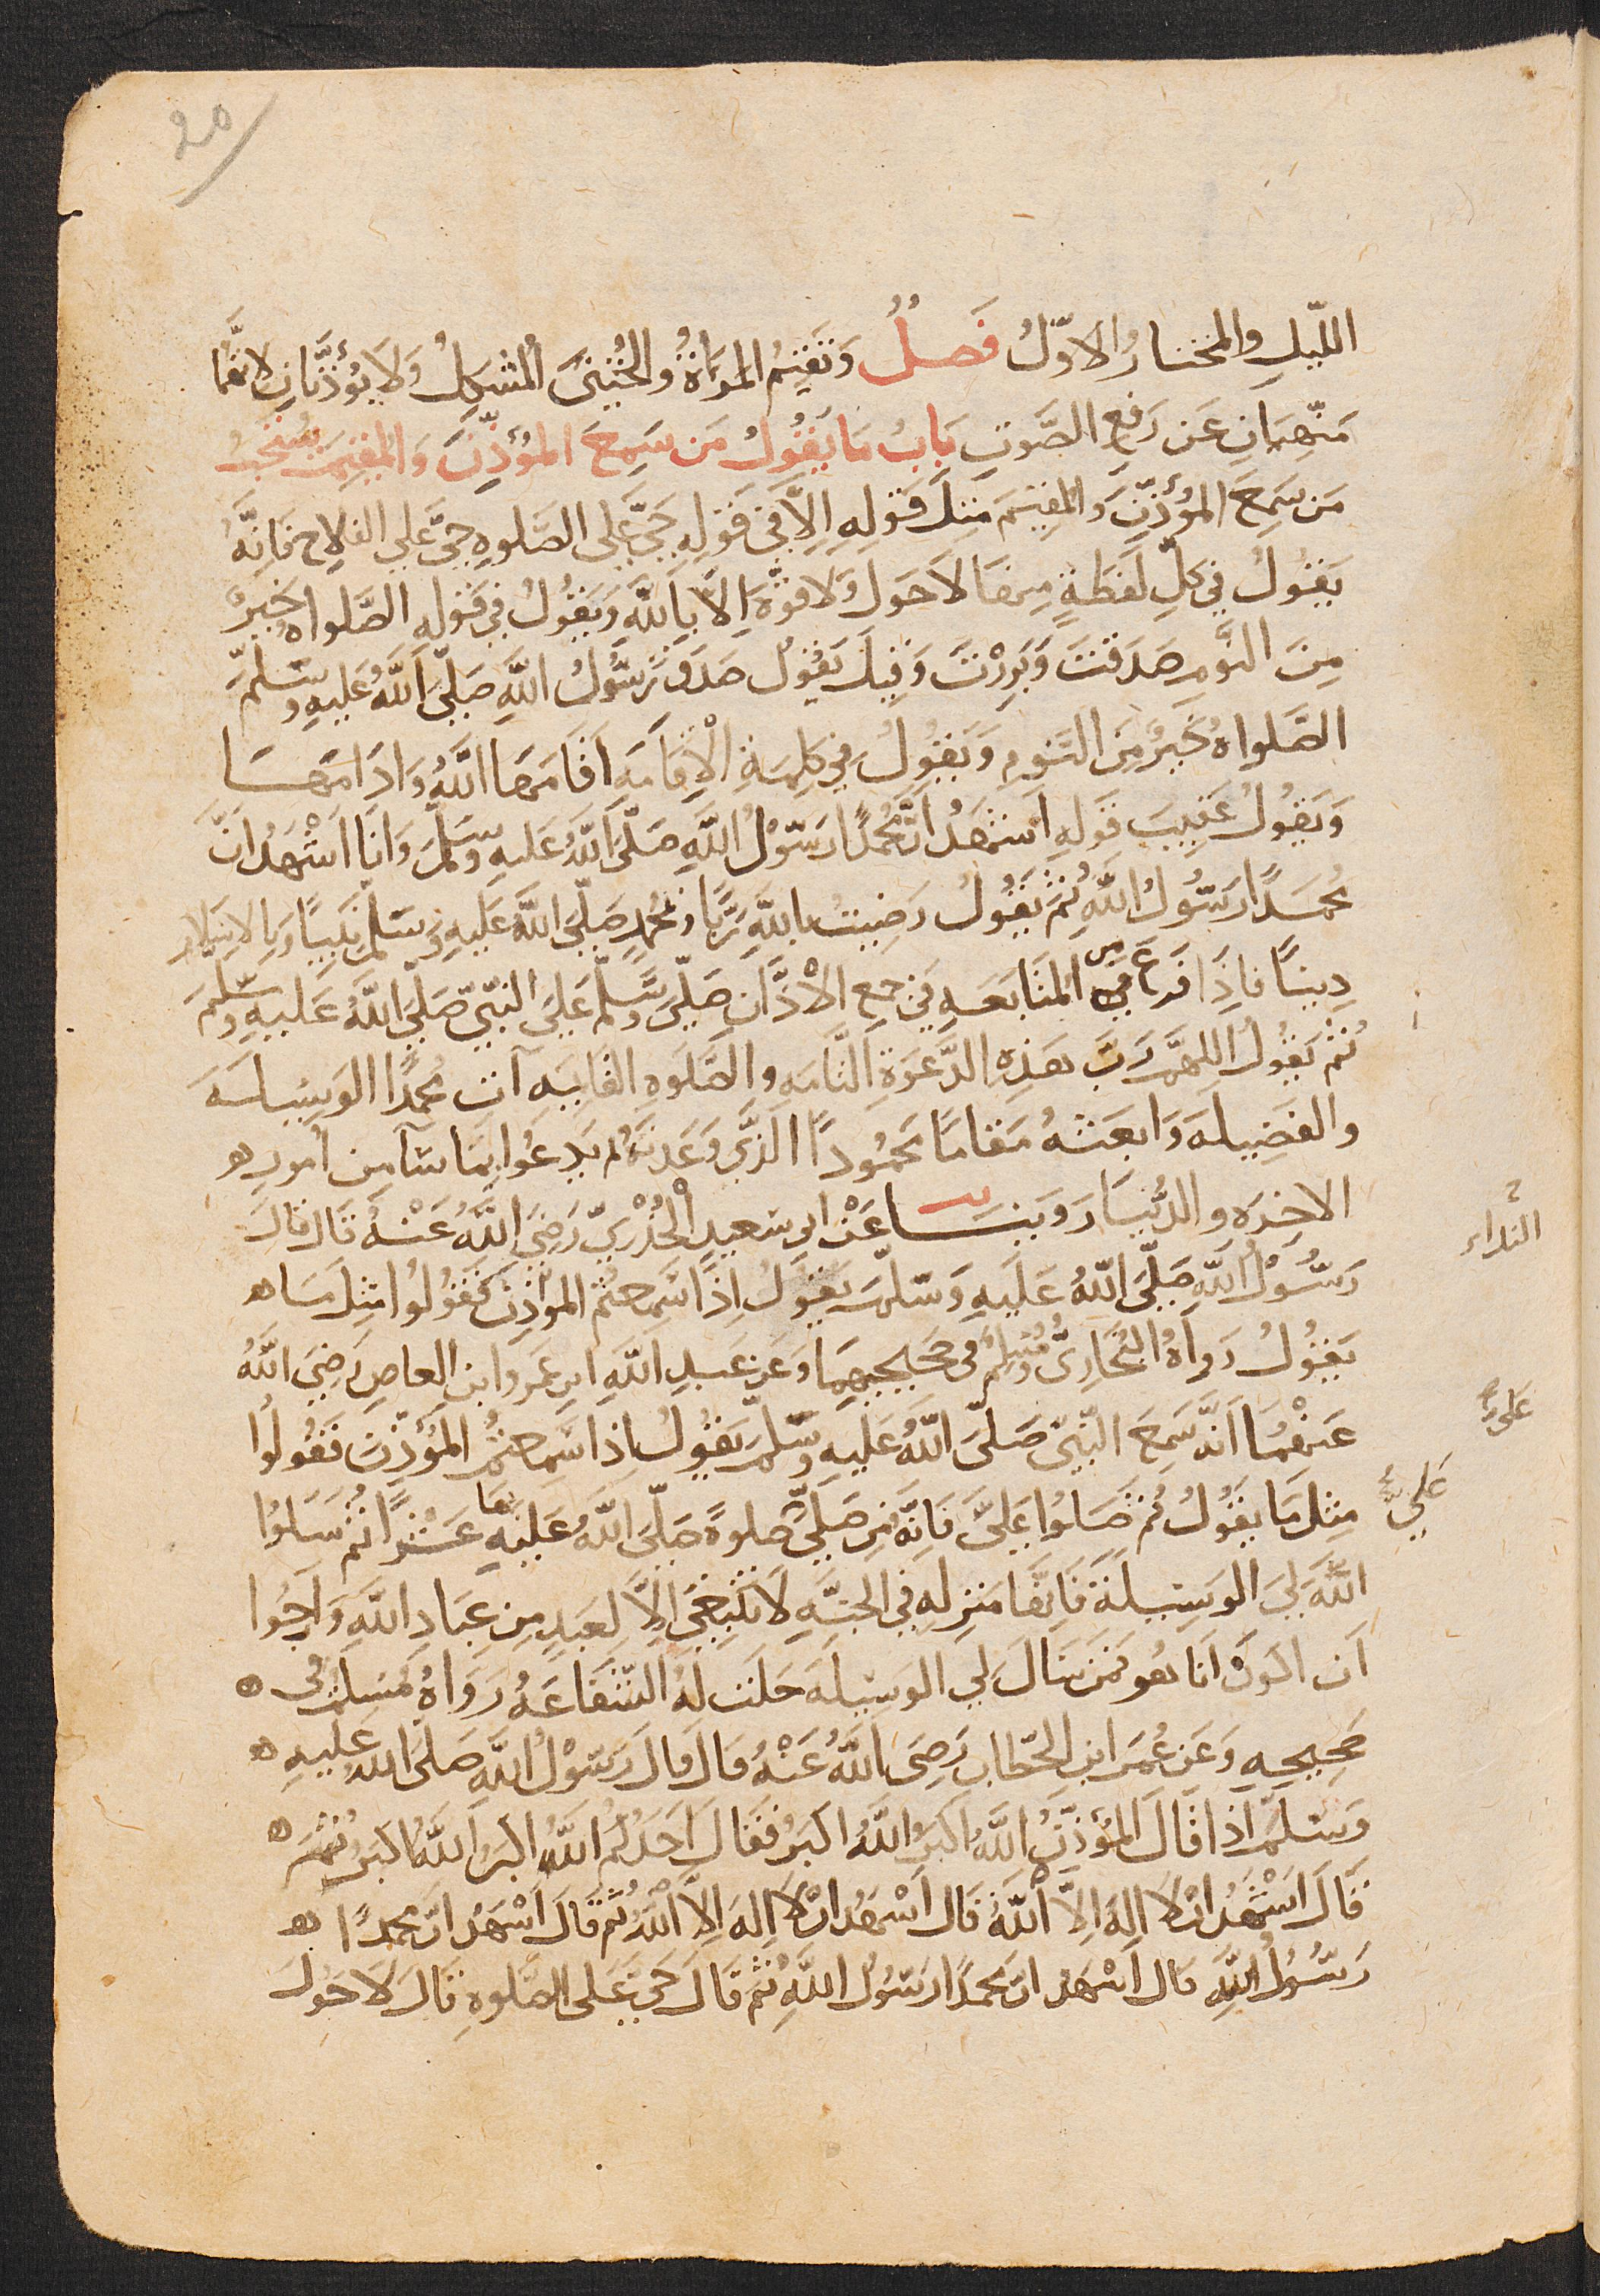 20
اللّيلِ والمختارُ الاوّلُ فَصلٌ وَتُقيمُ المَرأةُ والخُنثَى المُشكِلُ وَلا يؤذّنانِ لانّهما
مَنهِيانِ عَن رَفعِ الصَّوتِ بَابُ مَا يَقُولُ مَن سَمِعَ المُؤَذِّنَ وَالمُقيمَ يُستَحَبُّ
مَن سَمِعَ المُؤذّنَ وَالمُقيمَ مثلَ قَولِهِ اِلاَّ فِي قَولِهِ حَيَّ عَلي الصَّلوهِ حَيَّ عَلي الفلاح فَانِّهُ
يَقُولُ فِي كلِّ لَفظَةٍ مِنها لاَ حَولَ وَلا قوَّةَ اِلاَّ بِاللّهِ وَيَقُولُ فِي قَولِهِ الصَّلواهُ خَيرٌ
مِنَ النَّومِ صَدَقتَ وَبَرِرْتَ وَقِيلَ يَقُولُ صَدَقَ رَسُولُ اللّهِ صَلّيَ اللّهُ عَليهِ وَسَلّمَ
الصَّلواهُ خَيرٌ مِنَ النَّومِ وَيَقُولُ فِي كلِمَةِ الْاِقَامَهِ اَقَامَهَا اللّهُ وَادَامَهَا
وَيَقُولُ عَقِيبَ قَولِهِ اَشهَدُ انَّ مُحمَّدًا رَسُولُ اللّهِ صَلّيَ اللّهُ عَليهِ وَسَلّمَ وَانَا اَشْهَدُ انَّ
مُحمَدًا رَسُولُ اللّهِ ثُمَّ يَقُولُ رَضِيتُ بِاللّهِ رَبًّا وَبمُحمدٍ صَلّيَ اللّهُ عَليهِ وَسَلّمَ نَبِيًا وَبِالاِسلامِ
دِينًا فاِذَا فَرغَ مِن المتَابَعَهِ فِي جمعِ الاْذَّانِ صَلّيَ وَسَلّمَ عَلَيَ النَّبِيّ صَلّيَ اللّهُ عَليهِ وَسَلّمَ
ثُمَّ يَقُولُ اللهمَّ رَبَّ هَذِهِ الدَّعوَةِ التَّامَهِ وَالصَّلَوهِ القَايمَهِ آتِ مُحمدًا الوَسِيلَهَ
والفَضِيلَهَ وَابعَثهُ مَقامًا مَحمُودًا الَّذِّي وَعَدتَهُ ثم يَدعُوا بِمَا شآ مِن امُورِ
الاخِرَهِ وَالدُّنيَا رَوَينَا عَنْ ابي سَعيدٍ الْخُدْرِيّ رَضِيَ اللّهُ عَنْهُ قَالَ قَالَ
رَسُولُ اللّهِ صَلّيَ اللّهُ عَلَيهِ وَسَلّمَ يَقُولُ اِذَا سَمِعتُم المؤذِنَ فَقُولُوا مِثلَ مَا
يَقُولُ رَوَاهُ البُخَارِيُّ وَمُسْلِمٌ فِي صَحيحَيهِمَا وَعَن عَبدِ اللّهِ ابنِ عَمرو ابنِ العاصِ رَضِيَ اللّهُ
عَنهُمَا اَنَّهُ سَمِعَ النّبِيّ صَلّيَ اللّهُ عَليهِ وَسَلّمَ يَقُولُ اِذا سَمِعتُم المُؤذّنَ فَقُولُوا
مِثلَ مَا يَقُولُ ثُمَّ صَلوُا عَلَيَّ فَانَّهُ مَن صَلّيَ عَليَّ صلوةً صَلّيَ اللّهُ عَليهِ بهَا عَشرًا ثُمَّ سَلوُا
اللّهَ لِيَ الوَسِيلةَ فَاِنَّهَا مَنزِله فِي الجنَّهِ لاَ تَنبَغِي اِلاَّ لِعَبدٍ مِن عِبَادِ اللّهِ وَارجُوا
اَن اكونَ اَنَا هُو فَمَن سَالَ لِي الوَسِيلَهَ حَلّت لَهُ الشَّفَاعَهُ رَوَاهُ مُسلمٌ في
صَحِيحِهِ وَعَن عُمَرَ ابنِ الخطّابِ رَضِيَ اللّهُ عَنْهُ قَالَ قَالَ رَسُولُ اللّهِ صَلّى الله عَليهِ
وَسَلمّ اذا قَالَ المُؤذّنُ اللّهُ اَكبَرُ اللّهُ اكبَرُ فقَالَ اَحَدُكُم اللّهُ اكبَرُ اَللّهُ اكبَر ثُمّ
قَالَ اَشهَدُ ان لاَ الهَ اِلاَّ اللّهُ قَالَ اَشهَدُ ان لاَ اِلهَ اِلاَّ اللّهُ ثُمَّ قَالَ اَشهَدُ انّ محمدًا
رَسُولُ اللّهِ قَالَ اَشهَد انّ محمدًا رَسُولُ اللّهِ ثمَّ قَالَ حَيَّ عَلى الصَّلوةِ قَالَ لاَ حَولَ
النداء
عَلَيّ
عَلَيَّ